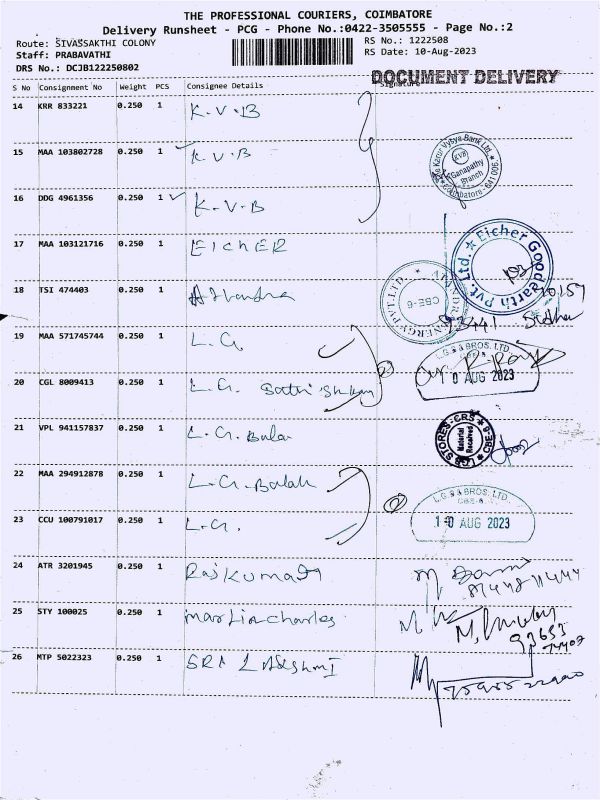 THE PROFESSIONAL COURIERS, COIMBATORE
Delivery Runsheet - PCG - Phone No.:0422-3505555 - Page No.:2
Route: SIVASSAKTHI COLONY
RS No.: 1222508
Staff: PRABAVATHI
RS Date: 10-Aug-2023
DRS No.: DCJB122250802
DOCUMENT DELIVERY
S No Consignment No Weight PCS Consignee Details Signature
14 KRR 833221 0.250 1 K.V.B
15 MAA 103802728 0.250 1 K.V.B
The Karur Vysya Bank Ltd.
KVB
Ganapathy
Branch
Coimbatore - 641 006
16 DDG 4961356 0.250 1 K.V.B
17 MAA 103121716 0.250 1 EICHER
Eicher Goodearth Pvt. Ltd.
18 TSI 474403 0.250 1
ENERGY PVT. LTD.
CBE-6
93441
19 MAA 571745744 0.250 1 L.G.
L.G.B & BROS. LTD.
CBE-6.
10 AUG 2023
20 CGL 8009413 0.250 1 L.G.
2
21 VPL 941157837 0.250 1 L.G. Bala
LGB STORES-CRS
CBE-6
Material
Received
22 MAA 294912878 0.250 1 L.G. Balak
2
L.G.B & BROS. LTD.
CBE-6.
10 AUG 2023
23 CCU 100791017 0.250 1 L.G.
24 ATR 3201945 0.250 1 Rajkumar
25 STY 100025 0.250 1 Martin charles
26 MTP 5022323 0.250 1 SRI LAKSHMI